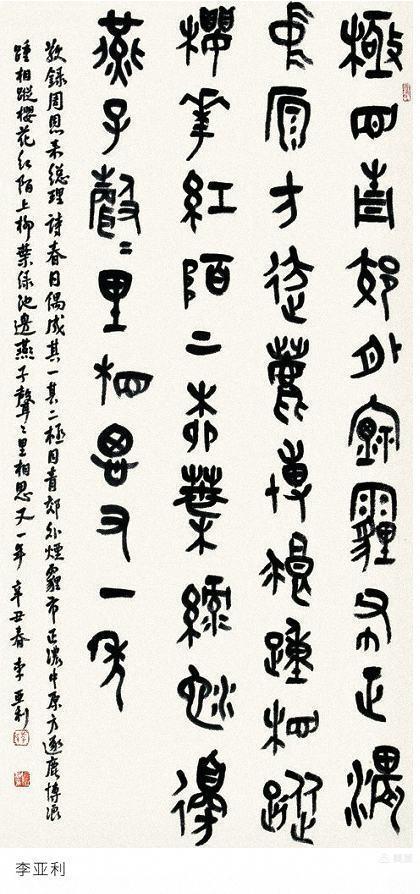 極目青郊外煙霾布正濃
中原方逐鹿博浪踵相蹤
櫻花紅陌上柳葉綠池邊
燕子聲〻里相思又一年
敬録周恩來總理詩春日偶成其一其二極目青郊外煙霾布正濃中原方逐鹿博浪
踵相蹤櫻花紅陌上柳葉綠池邊燕子聲〻里相思又一年 辛丑春 李亞利
李亚利